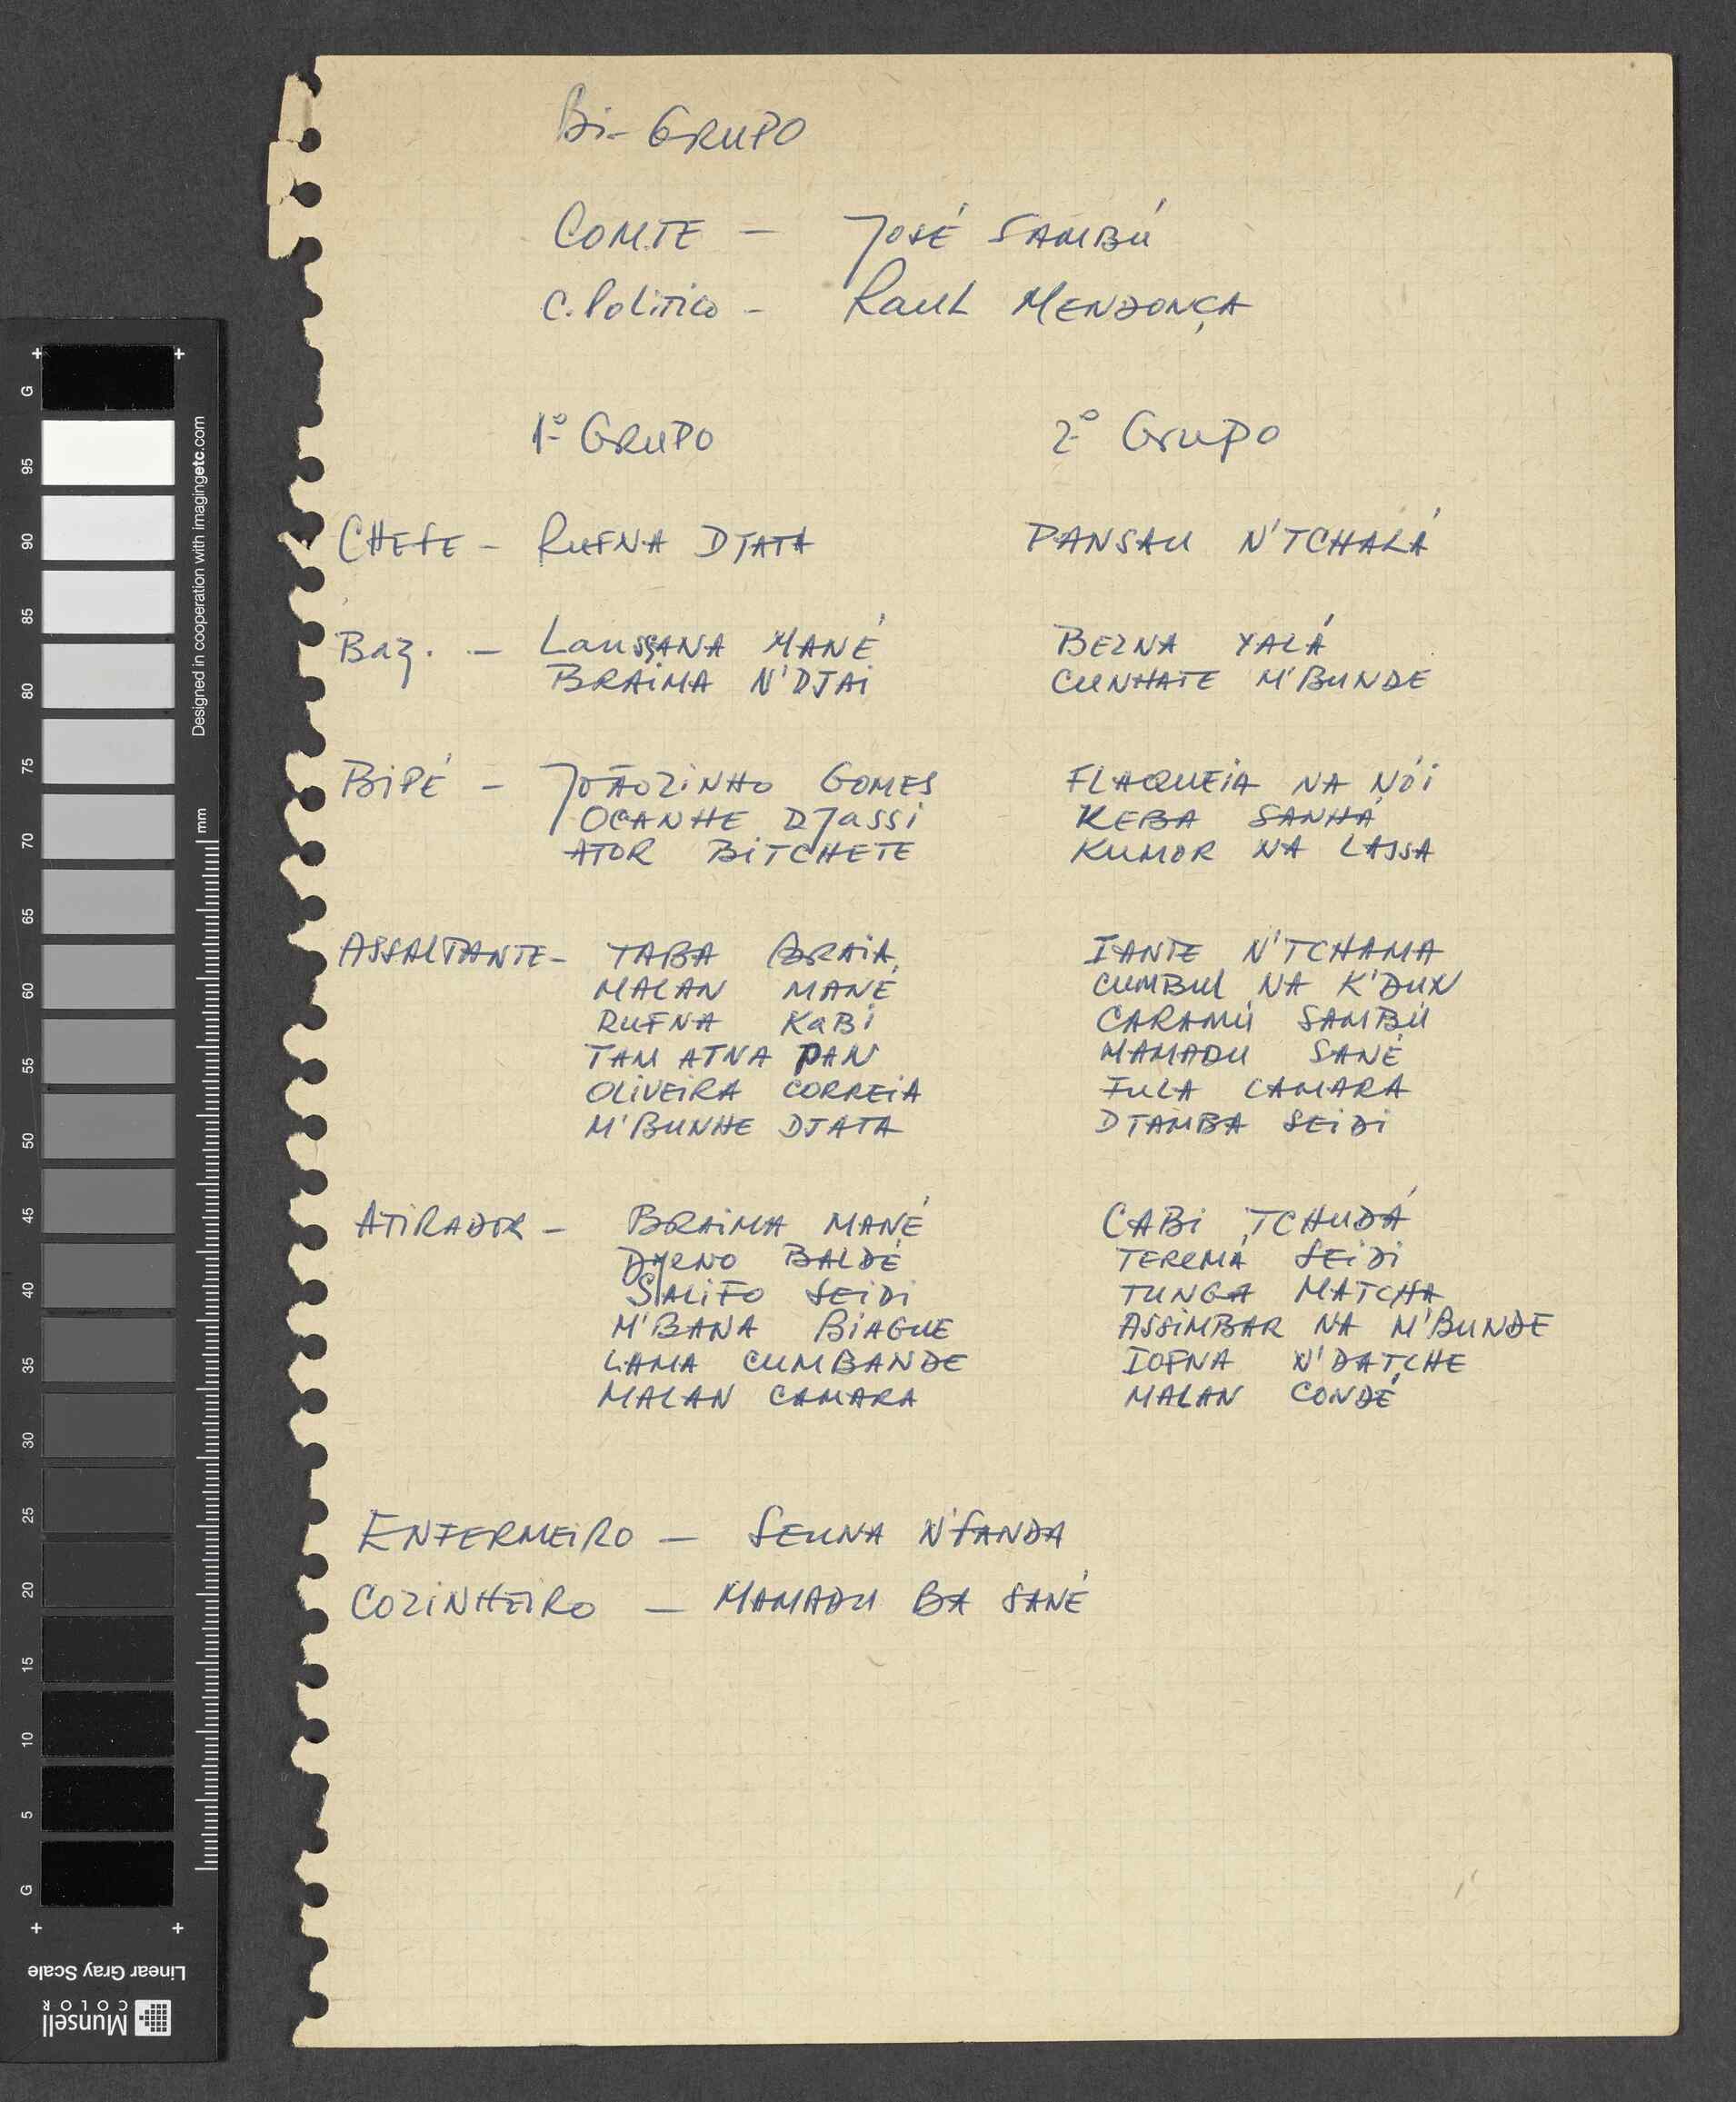 Bi-GRUPO
COM.TE — JOSÉ SAMBÚ
C. Politico - RAUL MENDONÇA
1º GRUPO 2º GRUPO
CHEFE - RUFNA DJATA PANSAU N'TCHALÁ
Baz. — LANSSANA MANÉ BEZNA YALÁ
BRAIMA N'DJAI CUNHATE M'BUNDE
BIPÉ - JOÃOZINHO GOMES FLAQUEIA NA NÓI
OCANHE DJASSI KEBA SANHÁ
ATOR BITCHETE KUMOR NA LASSA
ASSALTANTE - TABA BRAIA IANTE N'TCHAMA
MALAN MANÉ CUMBUL NA K'DUN
RUFNA KABI CARAMÚ SAMBÚ
TAM ATNA PAN MAMADU SANÉ
OLIVEIRA CORREIA FULA CAMARA
M'BUNHE DJATA DJAMBA SEIDI
ATIRADOR - BRAIMA MANÉ CABI TCHUDÁ
BALDÉ TEREMÁ SEIDI
SALIFO SEIDI TUNGA MATCHA
M'BANA BIAGUE ASSIMBAR NA M'BUNDE
LAMA CUMBANDE IOFNA N'DATCHE
MALAN CAMARA MALAN CONDÉ
ENFERMEIRO — SEUNA N'FANDA
COZINHEIRO — MAMADU BA SANÉ
G 95 90 85 80 75 70 65 60 55 50 45 40 35 30 25 20 15 10 5 G
Designed in cooperation with imagingetc.com
mm
Linear Gray Scale
Munsell
COLOR